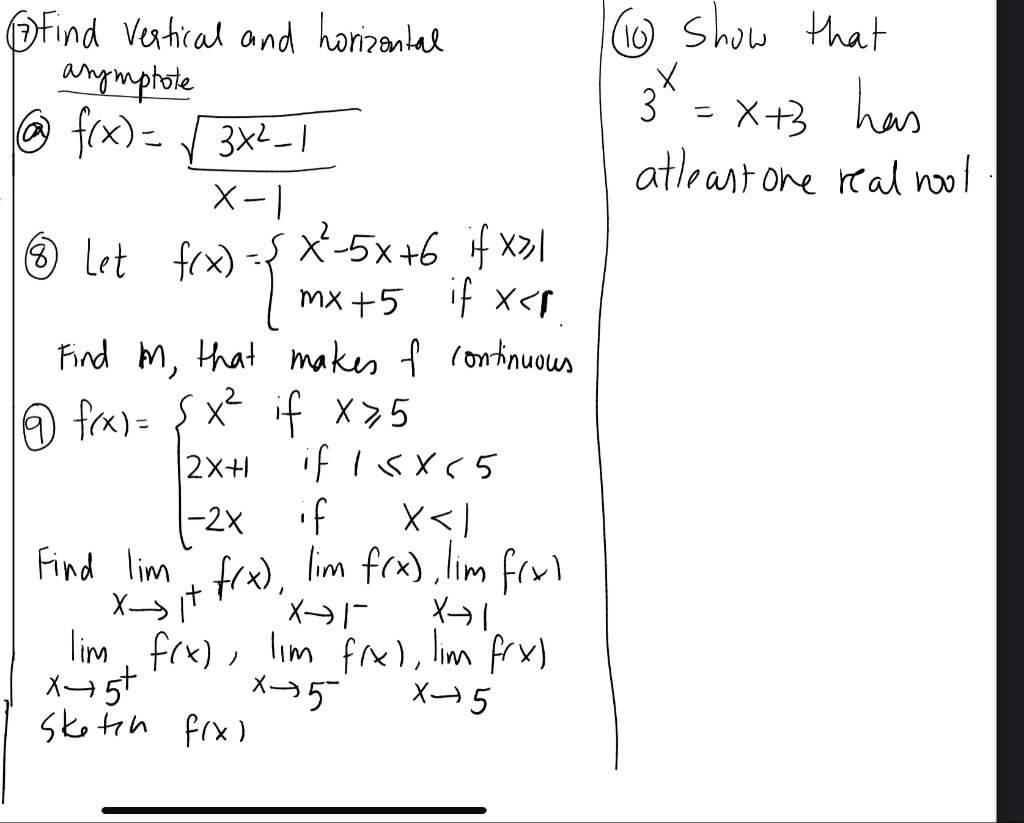 ⑦ Find Vertical and horizontal
asymptote
ⓐ f(x) = √(3x²-1)
x-1
⑧ Let f(x) = { x²-5x+6 if x⩾1
mx+5 if x<1.
Find m, that makes f continuous
⑨ f(x) = { x² if x⩾5
2x+1 if 1⩽x<5
-2x if x<1
Find lim f(x), lim f(x), lim f(x)
x→1⁺ x→1⁻ x→1
lim f(x), lim f(x), lim f(x)
x→5⁺ x→5⁻ x→5
Sketch f(x)
⑩ Show that
3ˣ = x+3 has
atleast one real root.